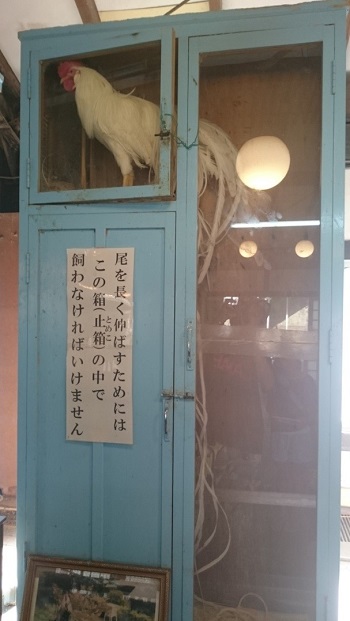 尾を長く伸ばすためには
この箱(止箱)の中で
とめこ
飼わなければいけません